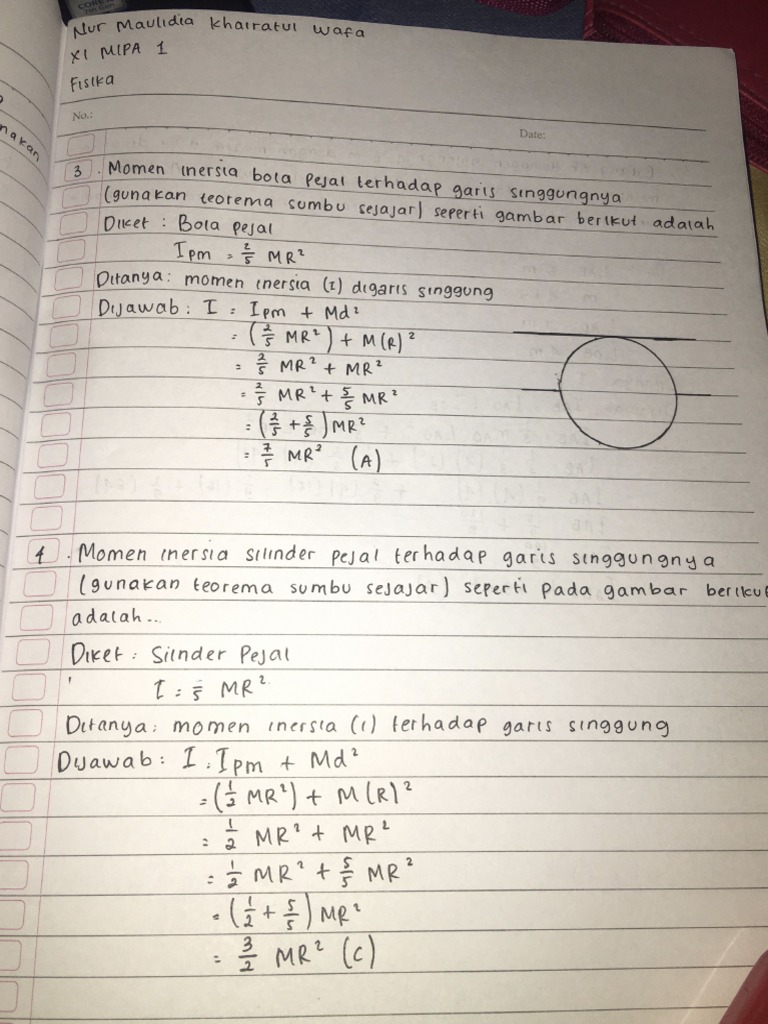 Nur Maulidia Khairatul Wafa
XI MIPA 1
Fisika
No.:
Date:
nakan
3. Momen inersia bola pejal terhadap garis singgungnya
(gunakan teorema sumbu sejajar) seperti gambar berikut adalah
Diket : Bola pejal
Ipm = 2/5 MR²
Ditanya: momen inersia (I) digaris singgung
Dijawab : I = Ipm + Md²
= (2/5 MR²) + M(R)²
= 2/5 MR² + MR²
= 2/5 MR² + 5/5 MR²
= (2/5 + 5/5) MR²
= 7/5 MR² (A)
4. Momen inersia silinder pejal terhadap garis singgungnya
(gunakan teorema sumbu sejajar) seperti pada gambar beriku
adalah...
Diket : Silnder Pejal
MR²
Ditanya: momen inersia (I) terhadap garis singgung
Dijawab : I = Ipm + Md²
= (1/2 MR²) + M(R)²
= 1/2 MR² + MR²
= 1/2 MR² + 5/5 MR²
= (1/2 + 5/5) MR²
= 3/2 MR² (C)